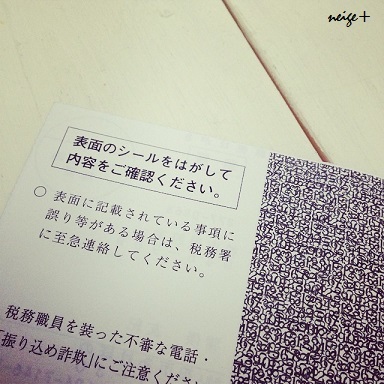 neige+
表面のシールをはがして
内容をご確認ください。
○ 表面に記載されている事項に
誤り等がある場合は、税務署
に至急連絡してください。
税務職員を装った不審な電話・
「振り込め詐欺」にご注意くださ